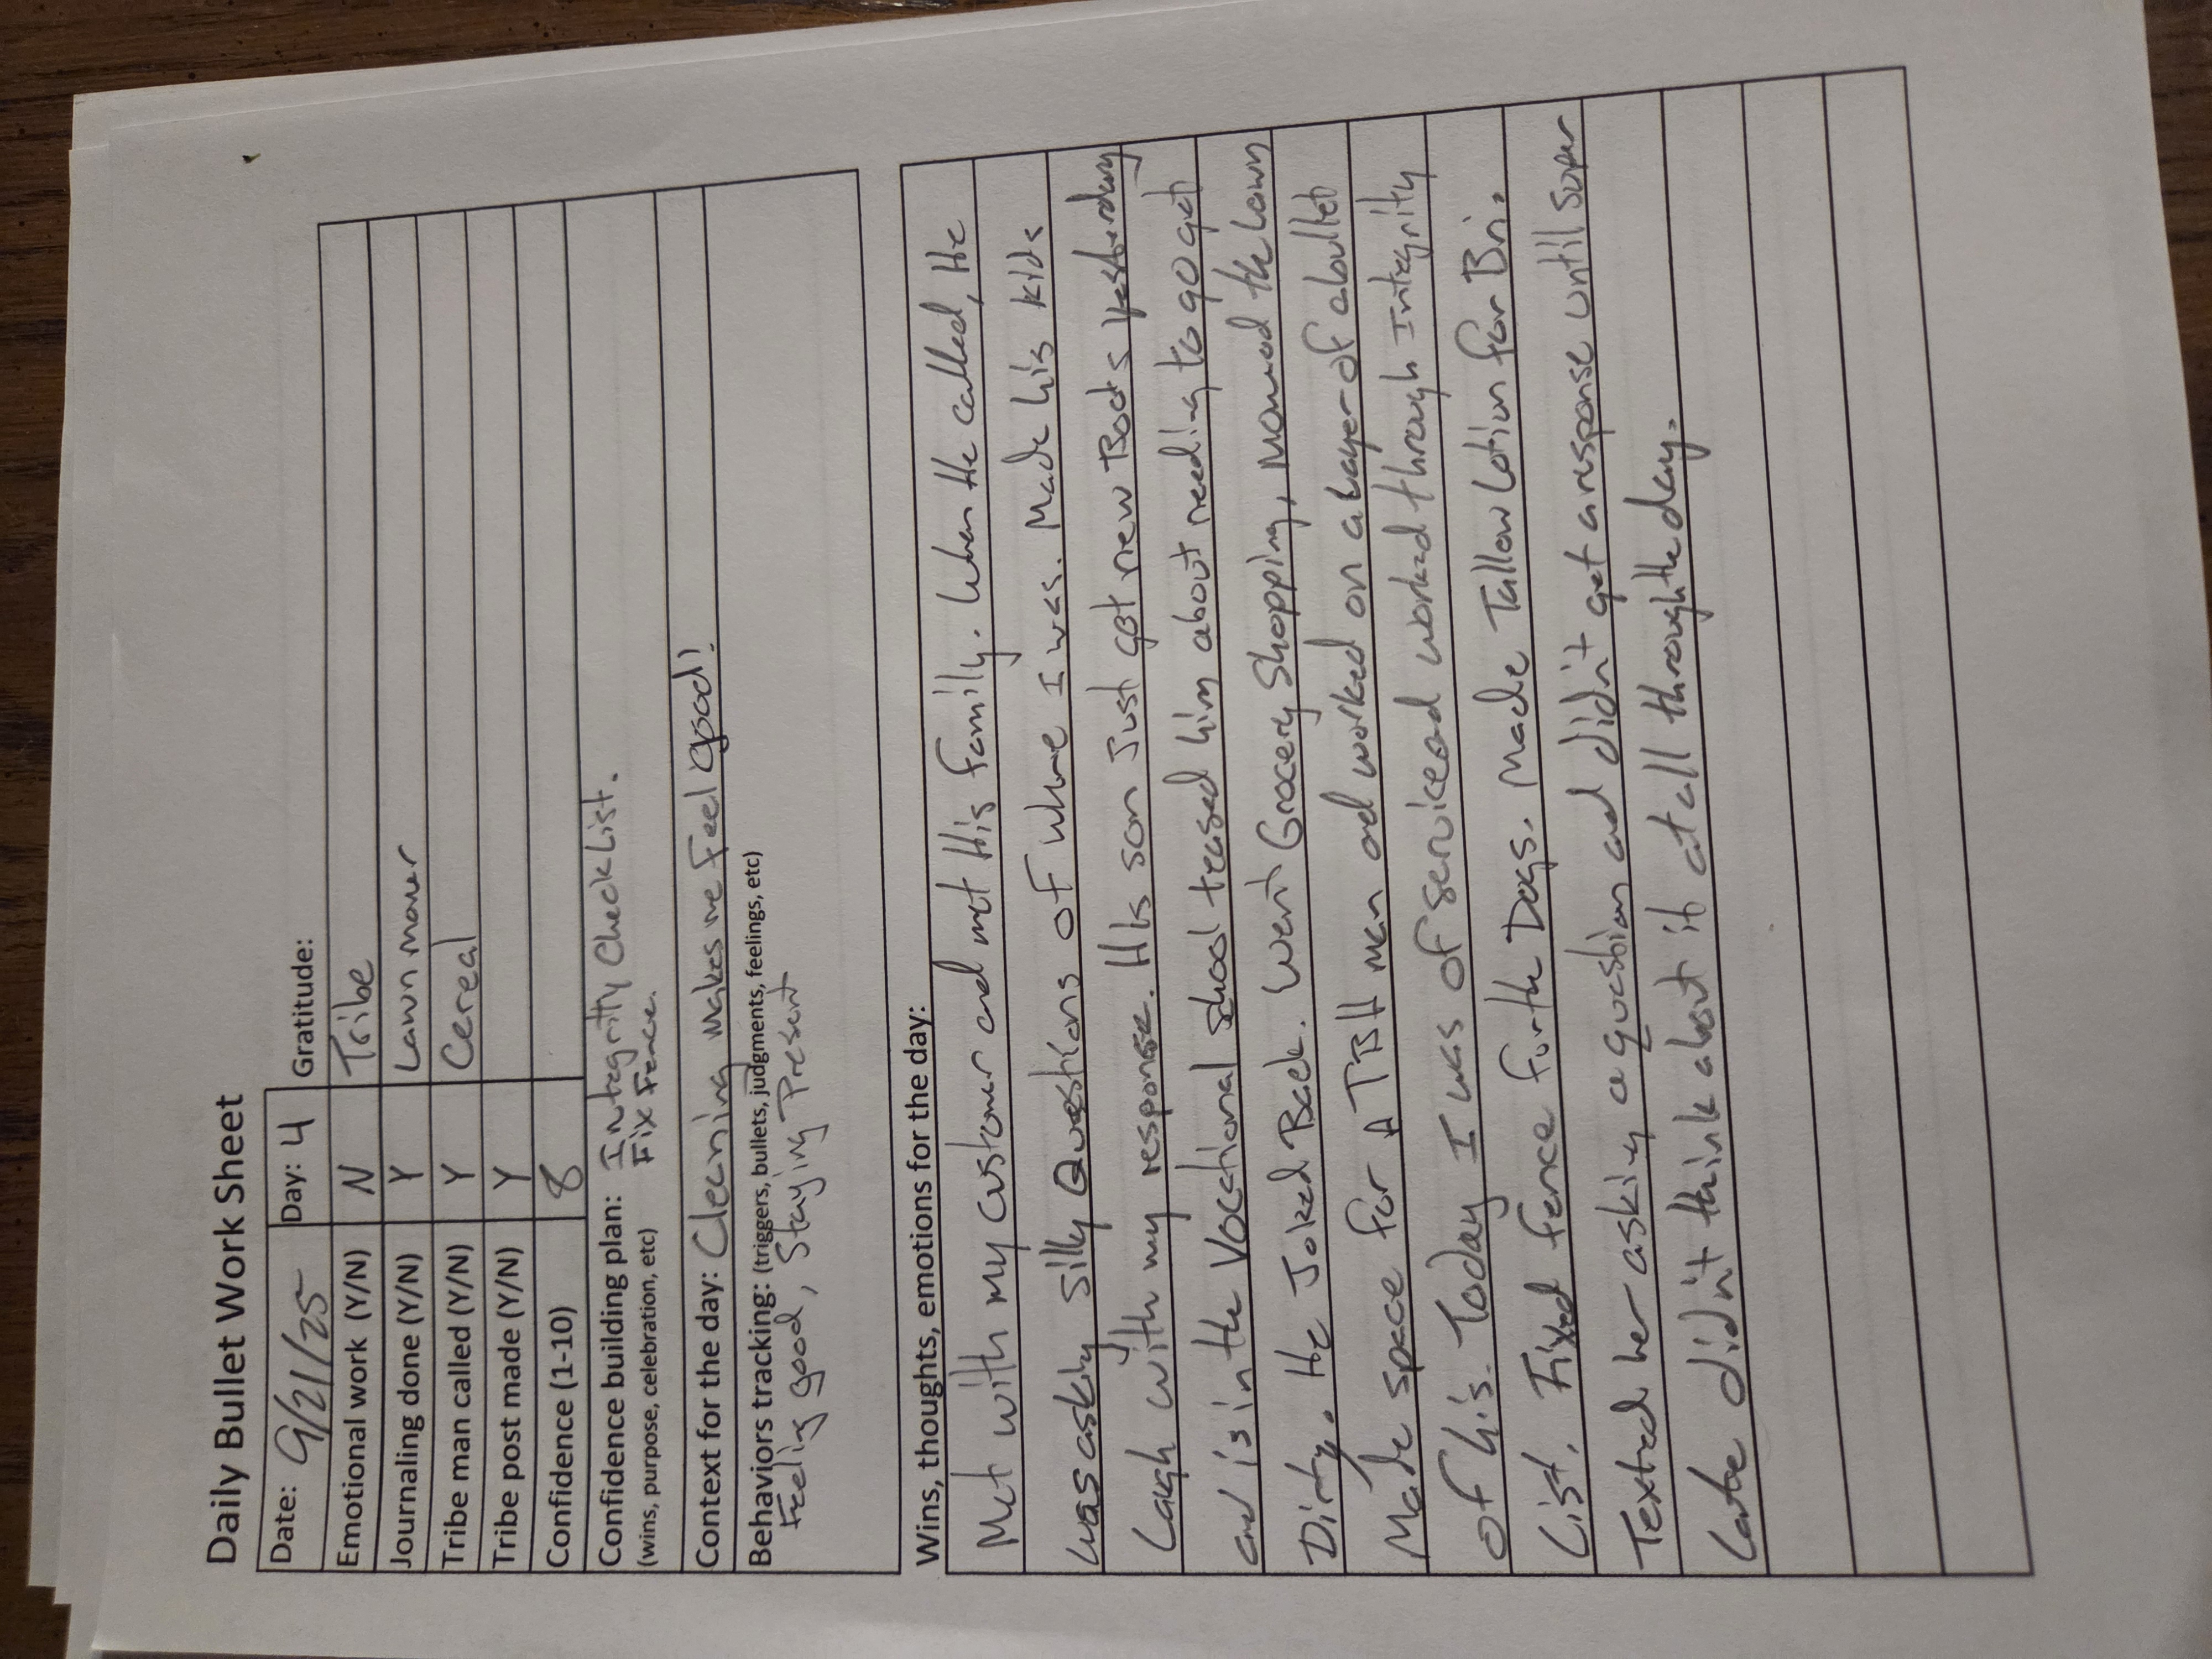 Daily Bullet Work Sheet
Date: 9/21/25 Day: 4 Gratitude:
Emotional work (Y/N) N Tribe
Journaling done (Y/N) Y Lawn mower
Tribe man called (Y/N) Y Cereal
Tribe post made (Y/N) Y
Confidence (1-10) 8
Confidence building plan: Integrity Checklist.
(wins, purpose, celebration, etc) Fix Fence.
Context for the day: Cleaning makes me Feel good!
Behaviors tracking: (triggers, bullets, judgments, feelings, etc)
Feeling good, Staying Present
Wins, thoughts, emotions for the day:
Met with my customer and met His family. When He called, He
was asking silly Questions of where I was. Made his kids
Laugh with my response. His son Just got new Boots yesterday
and is in the Vocational school teased him about needing to go get
Dirty. He Joked Back. Went Grocery Shopping, Mowed the Lawn
Made space for A TBH man and worked on a Layer of a bullet
of his. Today I was of service and worked through Integrity
List. Fixed fence for the Dogs. Made Tallow Lotion for Bri.
Texted her asking a question and didn't get a response until super
Late didn't think about it at all through the day.